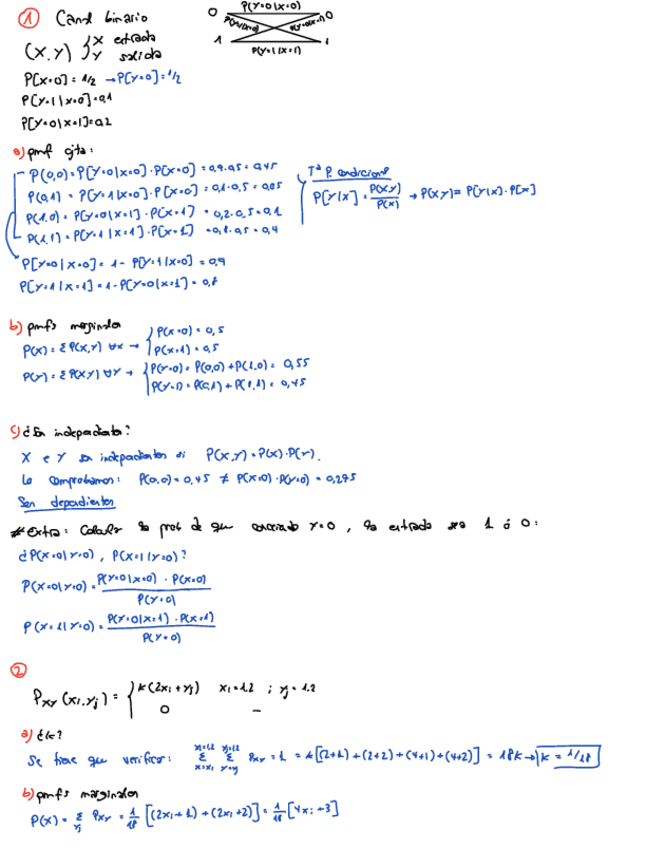 ① Canal binario
0 P(Y=0|X=0) 0
P(Y=1|X=0) P(Y=0|X=1)
1 P(Y=1|X=1) 1
(X,Y) } X entrada
Y salida
P[X=0] = 1/2 → P[Y=0] = 1/2
P[Y=1|X=0] = 0,1
P[Y=0|X=1] = 0,2
a) pmf cjta:
P(0,0) = P[Y=0|X=0] · P[X=0] = 0,9 · 0,5 = 0,45
P(0,1) = P[Y=1|X=0] · P[X=0] = 0,1 · 0,5 = 0,05
P(1,0) = P[Y=0|X=1] · P[X=1] = 0,2 · 0,5 = 0,1
P(1,1) = P[Y=1|X=1] · P[X=1] = 0,8 · 0,5 = 0,4
Tª P. condicional
P[Y|X] = P(X,Y)/P(X) → P(X,Y) = P[Y|X] · P[X]
P[Y=0|X=0] = 1 - P[Y=1|X=0] = 0,9
P[Y=1|X=1] = 1 - P[Y=0|X=1] = 0,8
b) pmfs marginales
P(X) = Σ P(X,Y) ∀X → { P(X=0) = 0,5
P(X=1) = 0,5
P(Y) = Σ P(X,Y) ∀Y → { P(Y=0) = P(0,0) + P(1,0) = 0,55
P(Y=1) = P(0,1) + P(1,1) = 0,45
c) ¿Son independientes?
X e Y son independientes si P(X,Y) = P(X) · P(Y).
Lo comprobamos: P(0,0) = 0,45 ≠ P(X=0) · P(Y=0) = 0,275
Son dependientes
# Extra: Calcular la prob de que conociendo Y=0, la entrada sea 1 ó 0:
¿P(X=0|Y=0), P(X=1|Y=0)?
P(X=0|Y=0) = P(Y=0|X=0) · P(X=0) / P(Y=0)
P(X=1|Y=0) = P(Y=0|X=1) · P(X=1) / P(Y=0)
②
P_XY (xi, yj) = { k(2xi + yj) xi=1,2 ; yj=1,2
0 —
a) ¿k?
Se tiene que verificar: Σ Σ P_XY = 1 = k[(2+1) + (2+2) + (4+1) + (4+2)] = 18k → k = 1/18
b) pmfs marginales
P(X) = Σ_yj P_XY = 1/18 [(2xi + 1) + (2xi + 2)] = 1/18 [4xi + 3]